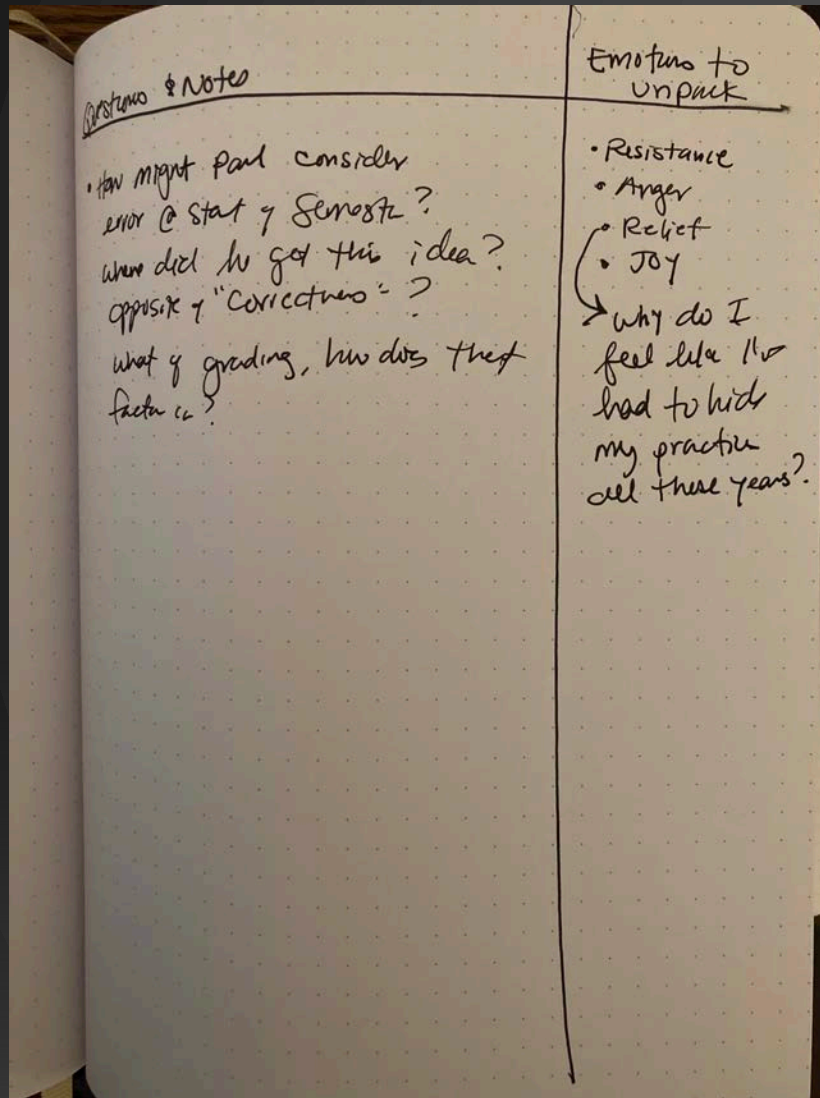 Questions & Notes
• How might Paul consider
error @ start of Semester?
where did he get this idea?
opposite of "Correctness" ?
what of grading, how does that
factor in?
Emotions to
unpack
• Resistance
• Anger
• Relief
• Joy
why do I
feel like I've
had to hide
my practice
all these years?